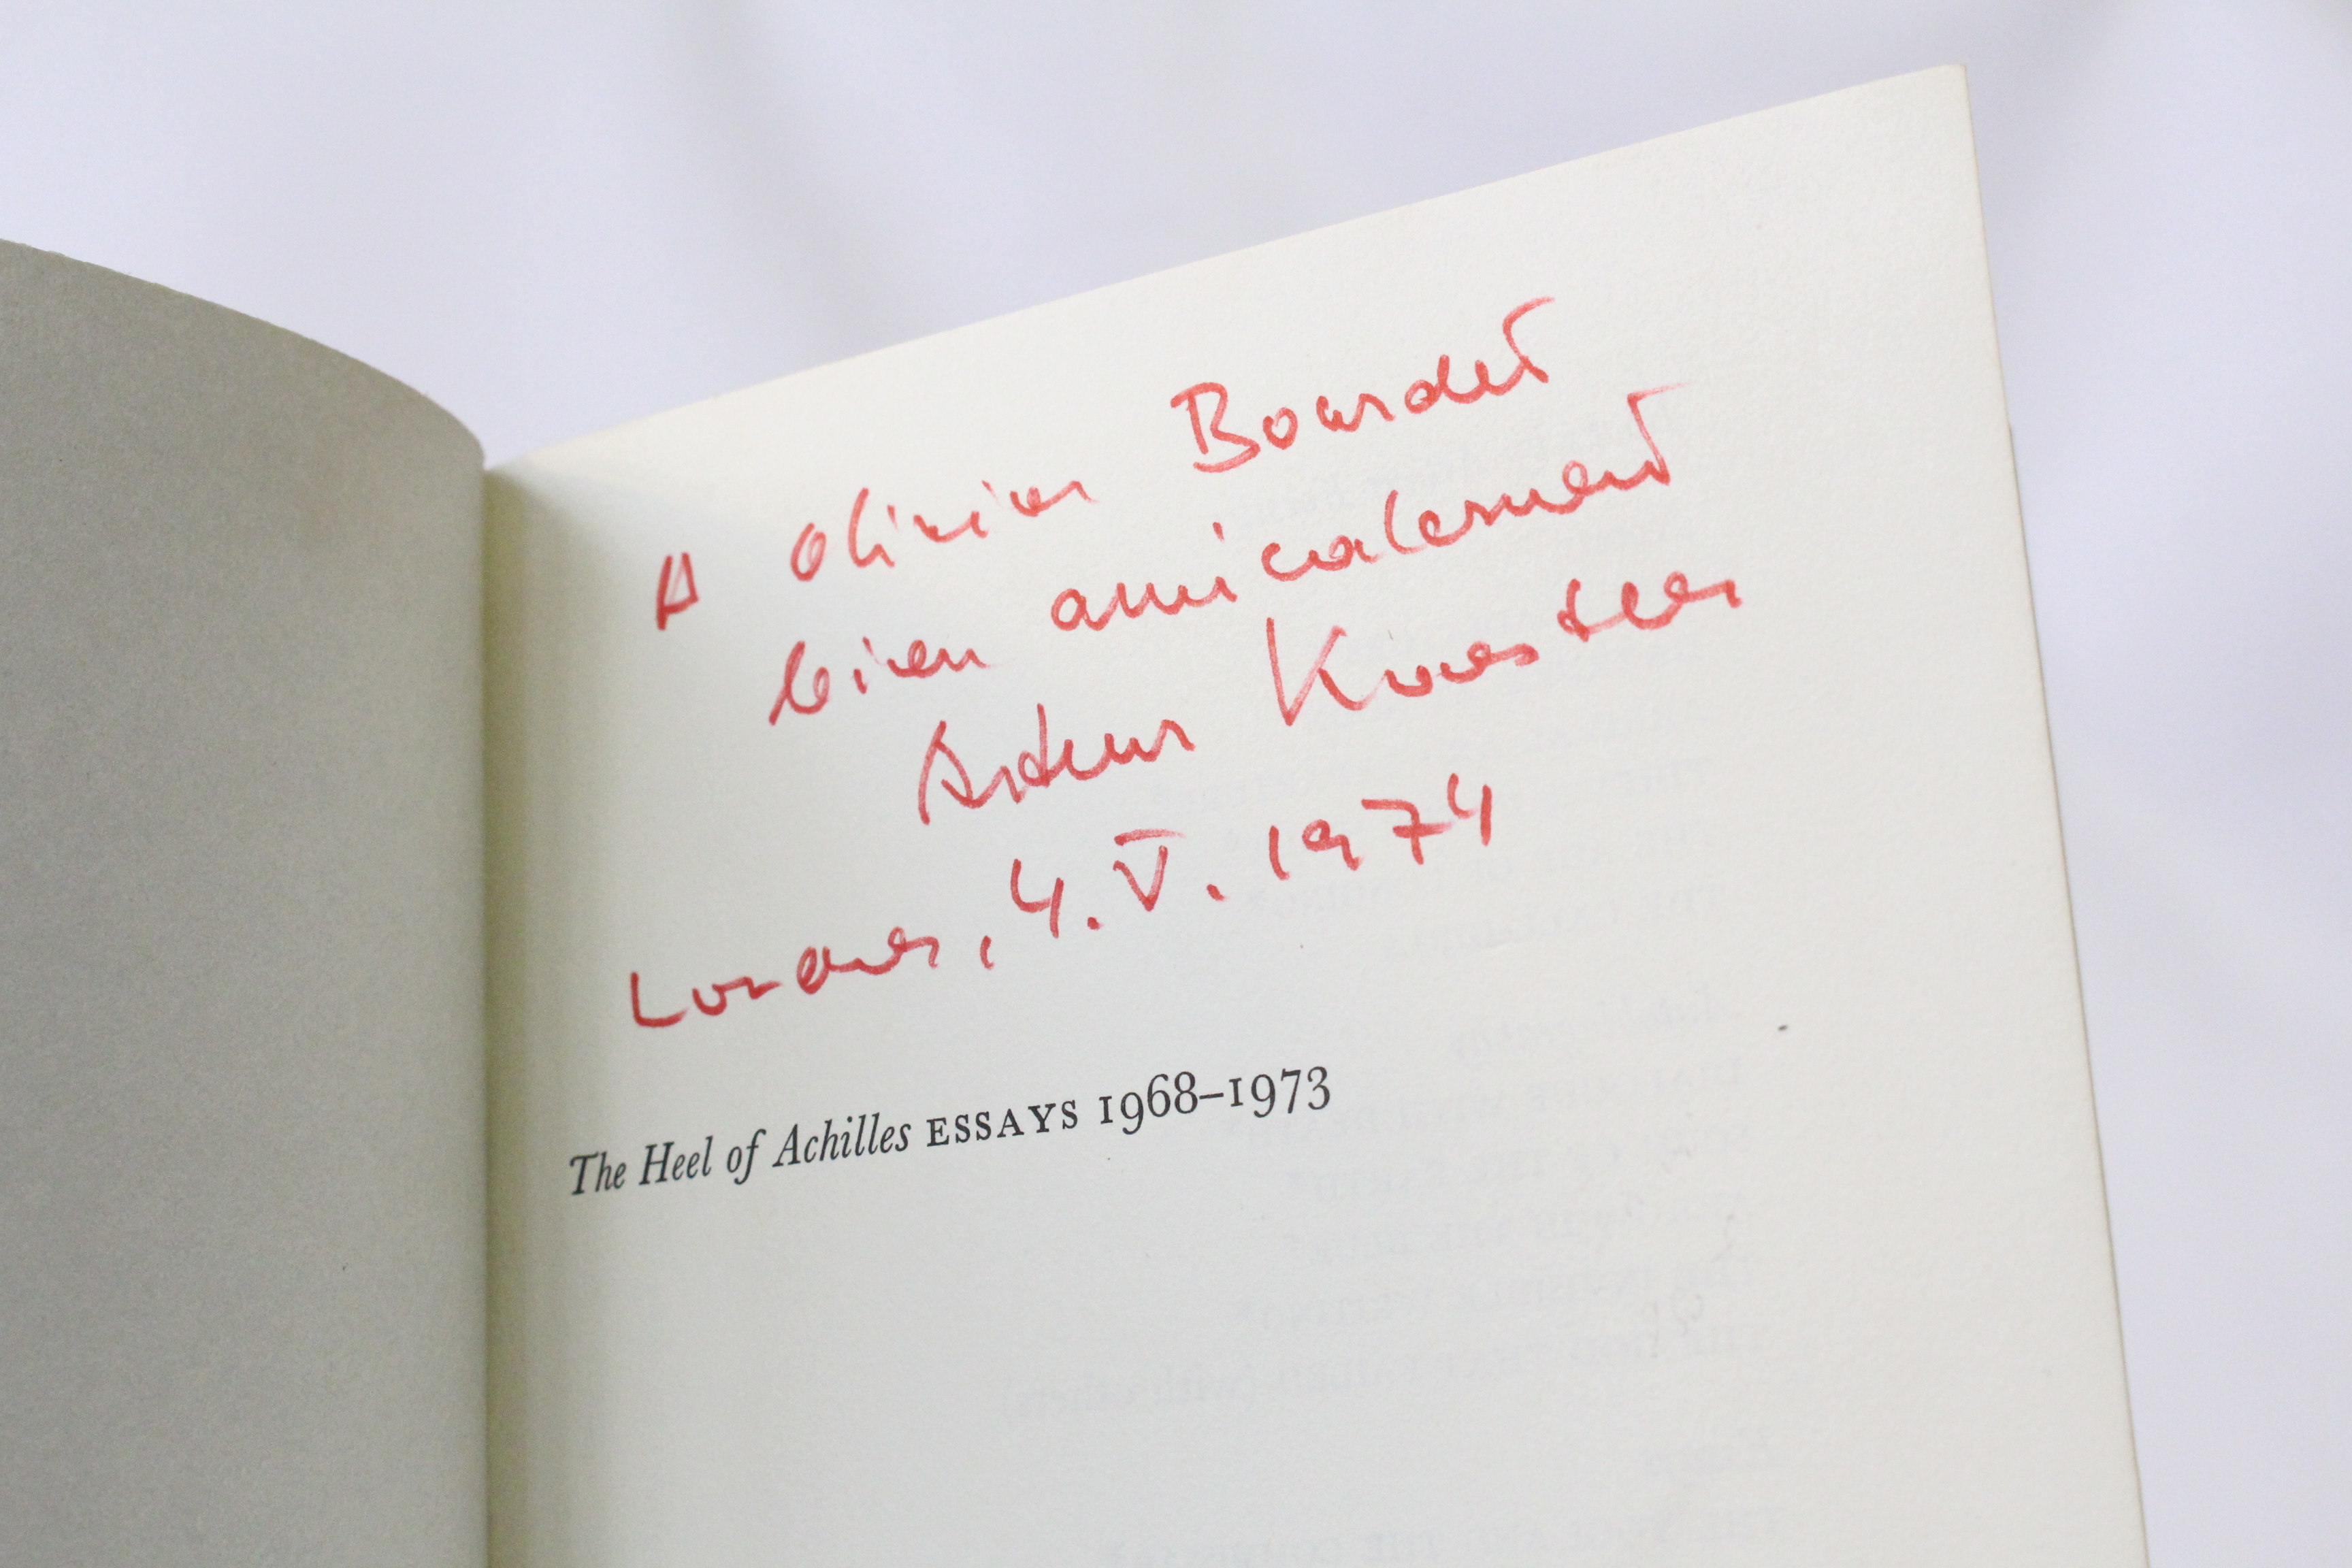 A Olivier Bourdet
bien amicalement
Arthur Koestler
Londres, 4.V.1974
The Heel of Achilles ESSAYS 1968–1973